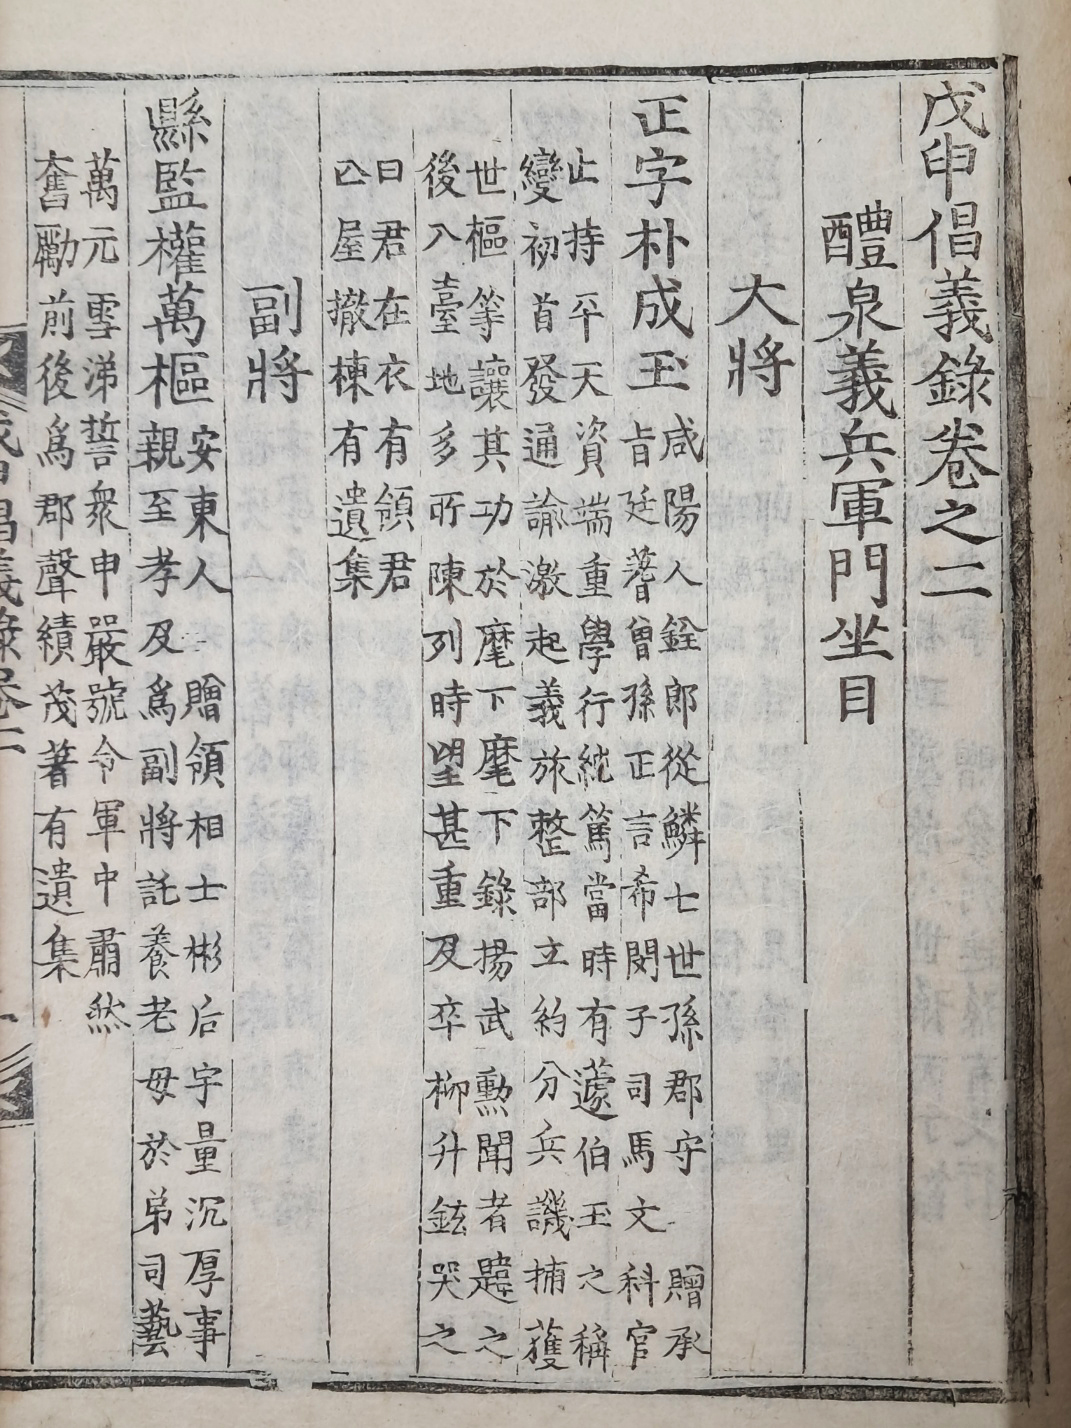 戊申倡義錄卷之二
醴泉義兵軍門坐目
大將
正字朴成玉
咸陽人銓郎從鱗七世孫郡守 贈承
旨廷蓍曾孫正言希閔子司馬文科官
止持平天資端重學行純篤當時有蘧伯玉之稱
變初首發通諭激起義旅整部立約分兵譏捕獲
世樞等讓其功於麾下麾下錄揚武勳聞者韙之
後入臺地多所陳列時望甚重及卒柳升鉉哭之
曰君在衣有領君
亾屋撤棟有遺集
副將
縣監權萬樞
安東人 贈領相士彬后宇量沉厚事
親至孝及爲副將託養老母於弟司藝
萬元雪涕誓衆申嚴號令軍中肅然
奮勵前後爲郡聲績茂著有遺集
戊申倡義錄卷二
一